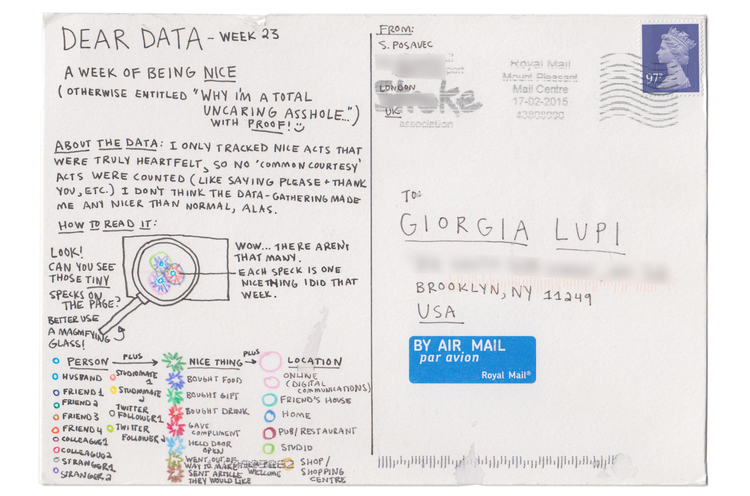 DEAR DATA - WEEK 23
A WEEK OF BEING NICE
(OTHERWISE ENTITLED "WHY I'M A TOTAL
UNCARING ASSHOLE...")
WITH PROOF!
ABOUT THE DATA: I ONLY TRACKED NICE ACTS THAT
WERE TRULY HEARTFELT, SO NO 'COMMON COURTESY'
ACTS WERE COUNTED (LIKE SAYING PLEASE + THANK
YOU, ETC.) I DON'T THINK THE DATA-GATHERING MADE
ME ANY NICER THAN NORMAL, ALAS.
HOW TO READ IT:
LOOK!
CAN YOU SEE
THOSE TINY
SPECKS ON
THE PAGE?
BETTER USE
A MAGNFYING
GLASS!
WOW... THERE AREN'T
THAT MANY.
EACH SPECK IS ONE
NICE THING I DID THAT
WEEK.
PERSON
PLUS
NICE THING
PLUS
LOCATION
HUSBAND
FRIEND 1
FRIEND 2
FRIEND 3
FRIEND 4
COLLEAGUE 1
COLLEAGUE 2
STRANGER 1
STRANGER 2
STUDIOMATE
1
STUDIOMATE
2
TWITTER
FOLLOWER 1
TWITTER
FOLLOWER 2
BOUGHT FOOD
BOUGHT GIFT
BOUGHT DRINK
GAVE
COMPLIMENT
HELD DOOR
OPEN
WENT OUT OF
WAY TO MAKE
WELCOME
SENT ARTICLE
THEY WOULD LIKE
ONLINE
(DIGITAL
COMMUNICATIONS)
FRIEND'S HOUSE
HOME
PUB/RESTAURANT
STUDIO
SHOP/
SHOPPING
CENTRE
FROM:
S. POSAVEC
LONDON
UK
Stroke
association
Royal Mail
Mount Pleasant
Mail Centre
17-02-2015
97P
TO:
GIORGIA LUPI
BROOKLYN, NY 11249
USA
BY AIR MAIL
par avion
Royal Mail®